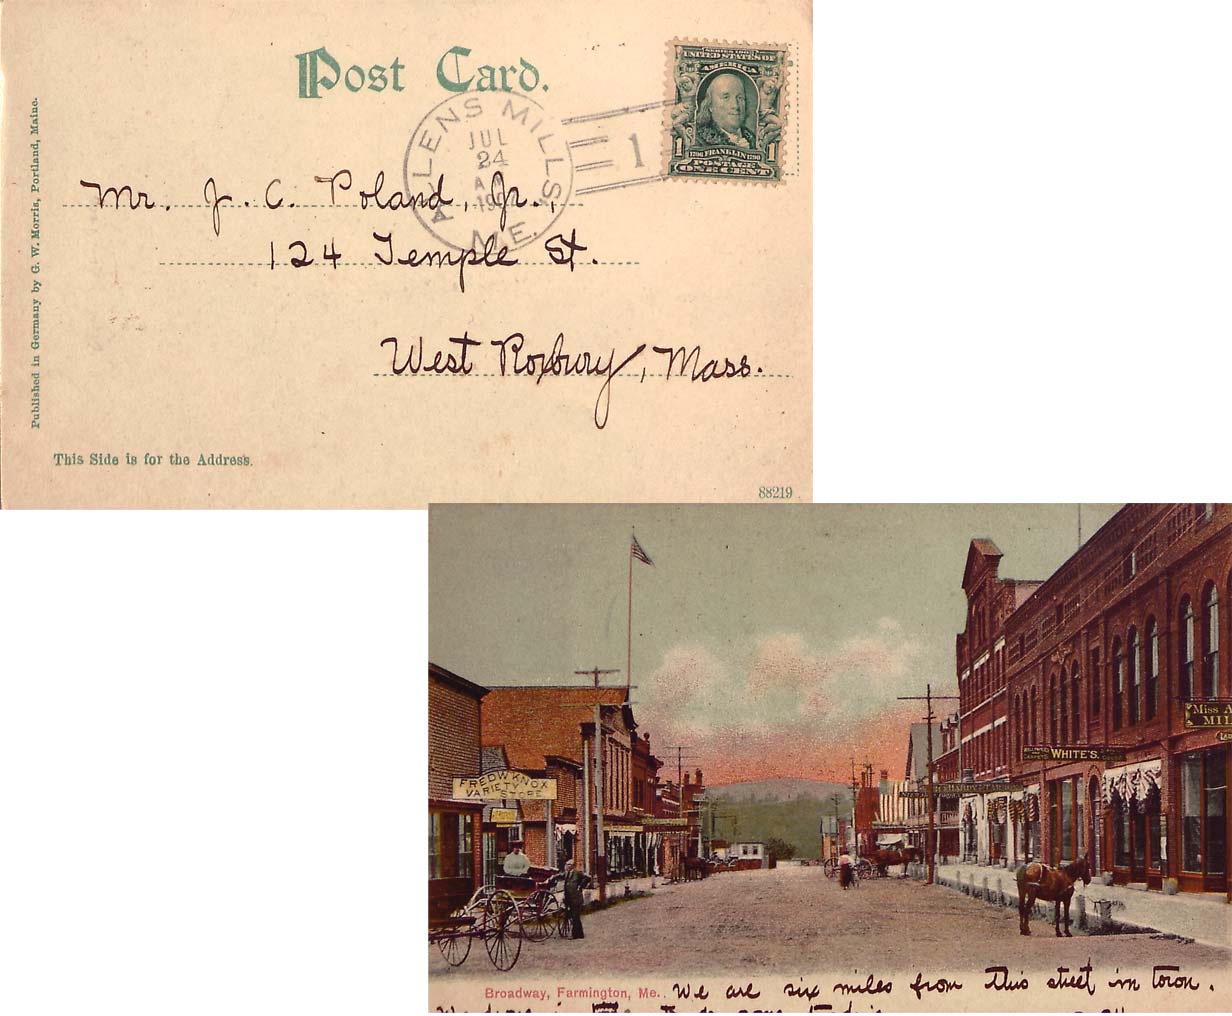 Post Card.
SERIES 1902
UNITED STATES OF
AMERICA
1 1706 FRANKLIN 1790 1
POSTAGE
ONE CENT
ALLENS MILLS,
JUL
24
ME.
1
Mr. J. C. Poland, Jr.,
124 Temple St.
West Roxbury, Mass.
Published in Germany by G. W. Morris, Portland, Maine.
This Side is for the Address.
88219
FRED W KNOX
VARIETY
STORE
WHITE'S.
Miss A
MIL
Broadway, Farmington, Me.. We are six miles from this street in town.